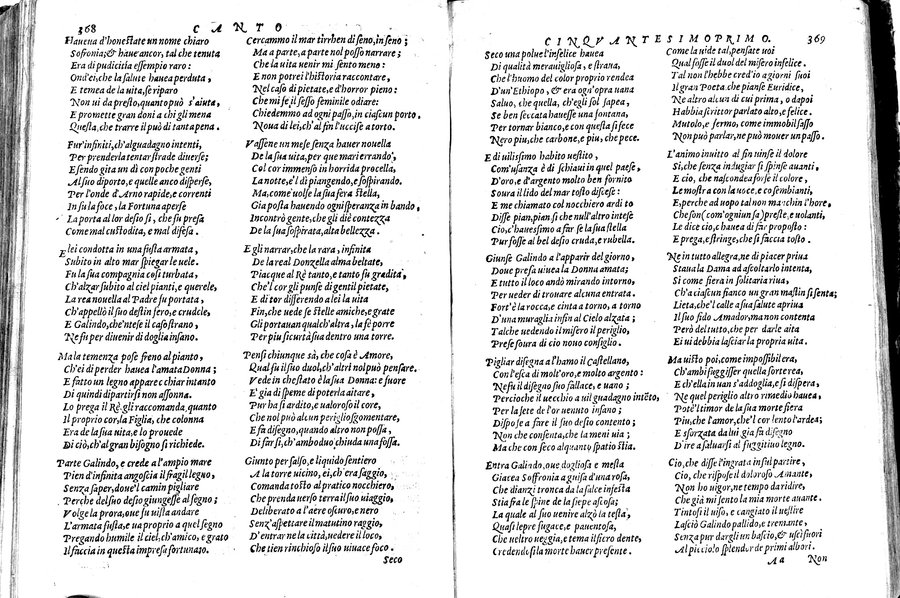 368 CANTO
Haueua d'honestate un nome chiaro
Sofronia; & hauea ancor, tal che tenuta
Era di pudicitia essempio raro:
Ond'ei, che la salute hauea perduta,
E temea de la uita, se riparo
Non ui da presto, quanto può s'aiuta,
E promette gran doni a chi gli mena
Questa, che trarre il può di tanta pena.
Fur'infiniti, ch'al guadagno intenti,
Per prenderla tentar strade diuerse;
E sendo gita un dì con poche genti
A l suo diporto, e quelle anco disperse,
Per l'onde d'Arno rapide, e correnti
In su la foce, la Fortuna aperse
La porta al lor desio sì, che fu presa
Come mal custodita, e mal difesa.
E lei condotta in una fusta armata,
Subito in alto mar spiegar le uele.
Fu la sua compagnia così turbata,
Ch'alzar subito al ciel pianti, e querele,
La rea nouella al Padre fu portata,
Ch'appellò il suo destin fero, e crudele,
E Galindo, ch'intese il caso strano,
Ne fu per diuenir di doglia insano.
Ma la temenza pose freno al pianto,
Ch'ei di perder hauea l'amata Donna;
E fatto un legno apparecchiar intanto
Di quindi dipartirsi non assonna.
Lo prega il Rè, gli raccomanda, quanto
Il proprio cor, la Figlia, che colonna
Era de la sua uita, e lo prouede
Di ciò, ch'al gran bisogno si richede.
Parte Galindo, e crede a l'ampio mare
Pien d'infinita angoscia il fragil legno,
Senza saper, doue'l camin pigliare
Perche del suo desio giungesse al segno;
Volge la prora, que fu uista andare
L'armata fusta, e ua proprio a quel segno
Pregando humile il ciel, ch'amico, e grato
Il faccia in questa impresa fortunato.
Cercammo il mar tirrhen di seno, in seno;
Ma a parte, a parte nol posso narrare;
Che la uita uenir mi sento meno:
E non potrei l'historia raccontare,
Nel caso di pietate, e d'horror pieno:
Che mi fe il sesso feminile odiare:
Chiedemmo ad ogni passo, in ciascun porto
Noua di lei, ch'al fin l'uccise a torto.
Vassene un mese senza hauer nouella
De la sua uita, per que mari errando,
Col cor immenso in horrida procella,
La notte, e'l dì piangendo, e sospirando.
Ma, come uolse la sua fera stella,
Gia posta hauendo ogni speranza in bando,
Incontrò gente, che gli diè contezza
De la sua sospirata, alta bellezza.
E gli narrar, che la rara, infinita
De la real Donzella alma beltate,
Piacque al Rè tanto, e tanto fu gradita,
Che'l cor gli punse di gentil pietate,
E di tor differendo a lei la uita
Fin, che uede se stelle amiche, e grate
Gli portauan qualch'altra, la fè porre
Per piu sicurtà sua dentro una torre.
Pensi chiunque sà, che cosa è Amore,
Qual fu il suo duol, ch'altri nol può pensare.
Vede in chestato è la sua Donna: e fuore
E' gia di speme di poterla aitare,
Pur ha si ardito, e ualoroso il core,
Che nol può alcun periglio sgomentare,
E fa disegno, quando altro non possa,
Di far sì, ch'amboduo chiuda una fossa.
Giunto per falso, e liquido sentiero
A la torre uicino, ei, ch'era saggio,
Comanda tosto al pratico nocchiero,
Che prenda uerso terra il suo uiaggio,
Deliberato a l'aere oscuro, e nero
Senz'aspettare il matutino raggio,
D'entrar ne la città, uedere il loco,
Che tien rinchioso il suo uiuace foco.
Seco
CINQVANTESIMOPRIMO. 369
Seco una polue l'infelice hauea
Di qualità merauigliosa, e strana,
Che l'huomo del color proprio rendea
D'un'Ethiopo, & era ogn'opra uana
Saluo, che quella, ch'egli sol sapea,
Se ben seccata hauesse una fontana,
Per tornar bianco, e con questa si fece
Nero piu, che carbone, e piu, che pece.
E di uilissimo habito uestito,
Com'usanza è di schiaui in quel paese,
D'oro, e d'argento molto ben fornito
Soura il lido del mar tosto discese:
E me chiamato col nocchiero ardito
Disse pian, pian si che null'altro intese
Ciò, c'hauessimo a far se la sua stella
Pur fosse al bel desio cruda, e rubella.
Giunse Galindo a l'apparir del giorno,
Doue presa uiuea la Donna amata;
E tutto il loco andò mirando intorno,
Per ueder di trouare alcuna entrata.
Fort'è la rocca, e cinta a torno, a torno
D'una muraglia infin al Cielo alzata;
Talche uedendo il misero il periglio,
Prese soura di cio nouo consiglio.
Pigliar disegna a l'hamo il Castellano,
Con l'esca di molt'oro, e molto argento:
Ne fu il disegno suo fallace, e uano;
Percioche il uecchio a uil guadagno intēto,
Per la sete de l'or uenuto insano;
Dispose a fare il suo desio contento;
Non che consenta, che la meni uia;
Ma che con seco alquanto spatio stia.
Entra Galindo, oue dogliosa e mesta
Giacea Soffronia a guisa d'una rosa,
Che dianzi tronca da la falce infesta
Stia fra le spine de la siepe ascosa;
La quale al suo uenire alzò la testa,
Quasi lepre fugace, e pauentosa,
Che ueltro ueggia, e tema il fiero dente,
Credendosi la morte hauer presente.
Come la uide tal, pensate uoi
Qual fosse il duol del misero infelice.
Tal non l'hebbe cred'io a giorni suoi
Il gran Poeta che pianse Euridice,
Ne altro alcun di cui prima, o dapoi
Habbia scrittor parlato alto, e felice.
Mutolo, e fermo, come immobil sasso
Non può parlar, ne può mouer un passo.
L'animo inuitto al fin uinse il dolore
Si, che senza indugiar si spinse auanti,
E ciò, che nascondea fosse il colore,
Le mostra con la uoce, e co sembianti,
E, perche ad uopo tal non machin l'hore,
Che son (com'ognun sa) preste, e uolanti,
Le dice ciò, c'hauea di far proposto:
E prega, e stringe, che si faccia tosto.
Ne in tutto allegra, ne di piacer priua
Staua la Dama ad ascoltarlo intenta,
Si come fiera in solitaria riua,
Ch'a ciascun fianco un gran mastin si senta;
Lieta, che'l calle a sua salute apriua
Il suo fido Amador, ma non contenta
Però del tutto, che per darle aita
Ei ui debbia lasciar la propria uita.
Ma uisto poi, come impossibil era,
Ch'ambi fuggisser quella forte rera,
E ch'ella in uan s'addoglia, e si dispera,
Ne quel periglio altro rimedio hauea,
Pote'l timor de la sua morte fiera
Piu, che l'amor, che'l cor lento l'ardea,
E sforzata da lui gia fà disegno
D'ire a saluarsi al fuggitiuo legno.
Cio, che disse l'ingrata in sul partire,
Cio, che rispose il doloroso Amante,
Non ho uigor, ne tempo da ridire,
Che già mi sento la mia morte auante.
Tintosi il uiso, e cangiato il uestire
Lasciò Galindo pallido, e tremante,
Senza pur dargli un bascio, & uscì fuori
Al picciolo splendor de primi albori.
Aa Non